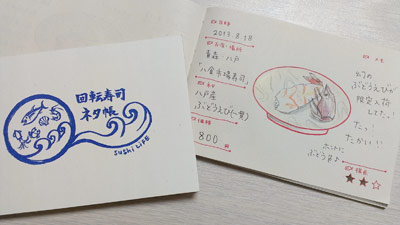 回転寿司
ネタ帳
SUSHI LIFE
日時
2017.8.18
お店・場所
青森・八戸
「八食市場寿司」
ネタ
八戸産
ぶどうえび(一貫)
価格
800
メモ
幻の
ぶどうえびが
限定入荷
してた!
たっ!
たかい!!
ほんとに
ぶどう色♪
★★☆